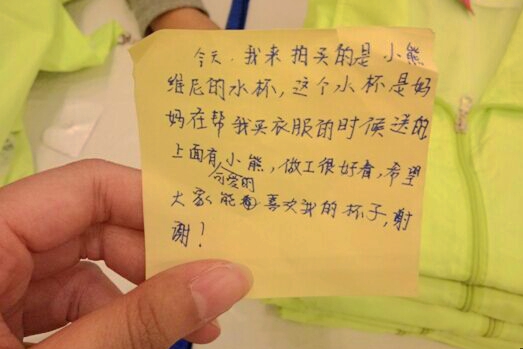 今天,我来拍卖的是小熊
维尼的水杯,这个水杯是妈
妈在帮我买衣服的时候送的
上面有可爱的小熊,做工很好看,希望
大家能喜欢我的杯子,谢
谢!